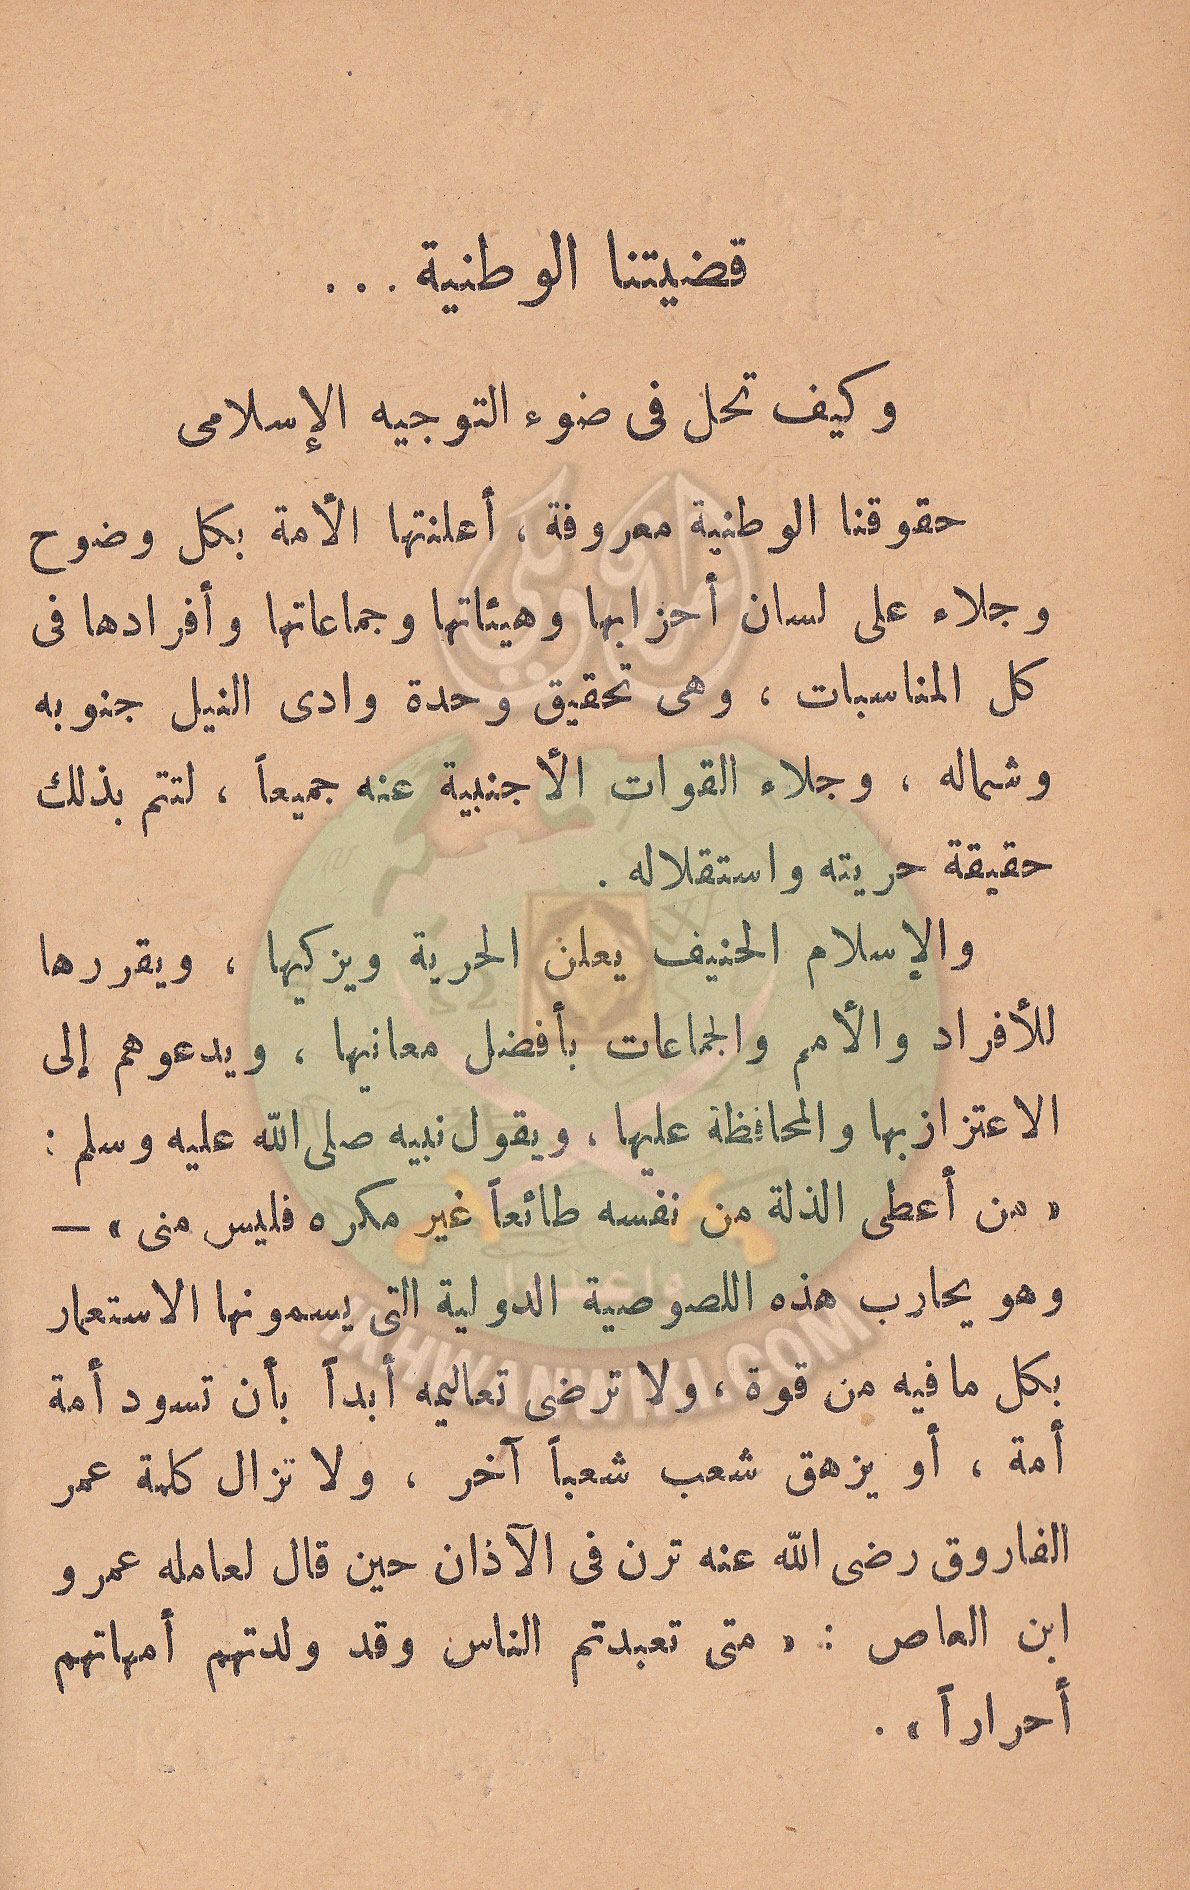 قضيتنا الوطنية . . .
وكيف تحل فى ضوء التوجيه الإسلامى
حقوقنا الوطنية معروفة ، أعلنتها الأمة بكل وضوح
وجلاء على لسان أحزابها وهيئاتها وجماعاتها وأفرادها فى
كل المناسبات ، وهى تحقيق وحدة وادى النيل جنوبه
وشماله ، وجلاء القوات الأجنبية عنه جميعاً ، لتتم بذلك
حقيقة حريته واستقلاله .
والإسلام الحنيف يعلن الحرية ويزكيها ، ويقررها
للأفراد والأمم والجماعات بأفضل معانيها ، ويدعوهم إلى
الاعتزاز بها والمحافظة عليها ، ويقول نبيه صلى الله عليه وسلم :
« من أعطى الذلة من نفسه طائعاً غير مكره فليس منى » —
وهو يحارب هذه اللصوصية الدولية التى يسمونها الاستعمار
بكل ما فيه من قوة ، ولا ترضى تعاليمه أبداً بأن تسود أمة
أمة ، أو يزهق شعب شعباً آخر ، ولا تزال كلمة عمر
الفاروق رضى الله عنه ترن فى الآذان حين قال لعامله عمرو
ابن العاص : « متى تعبدتم الناس وقد ولدتهم أمهاتهم
أحراراً » .
وأعدوا
IKHWANWIKI.COM